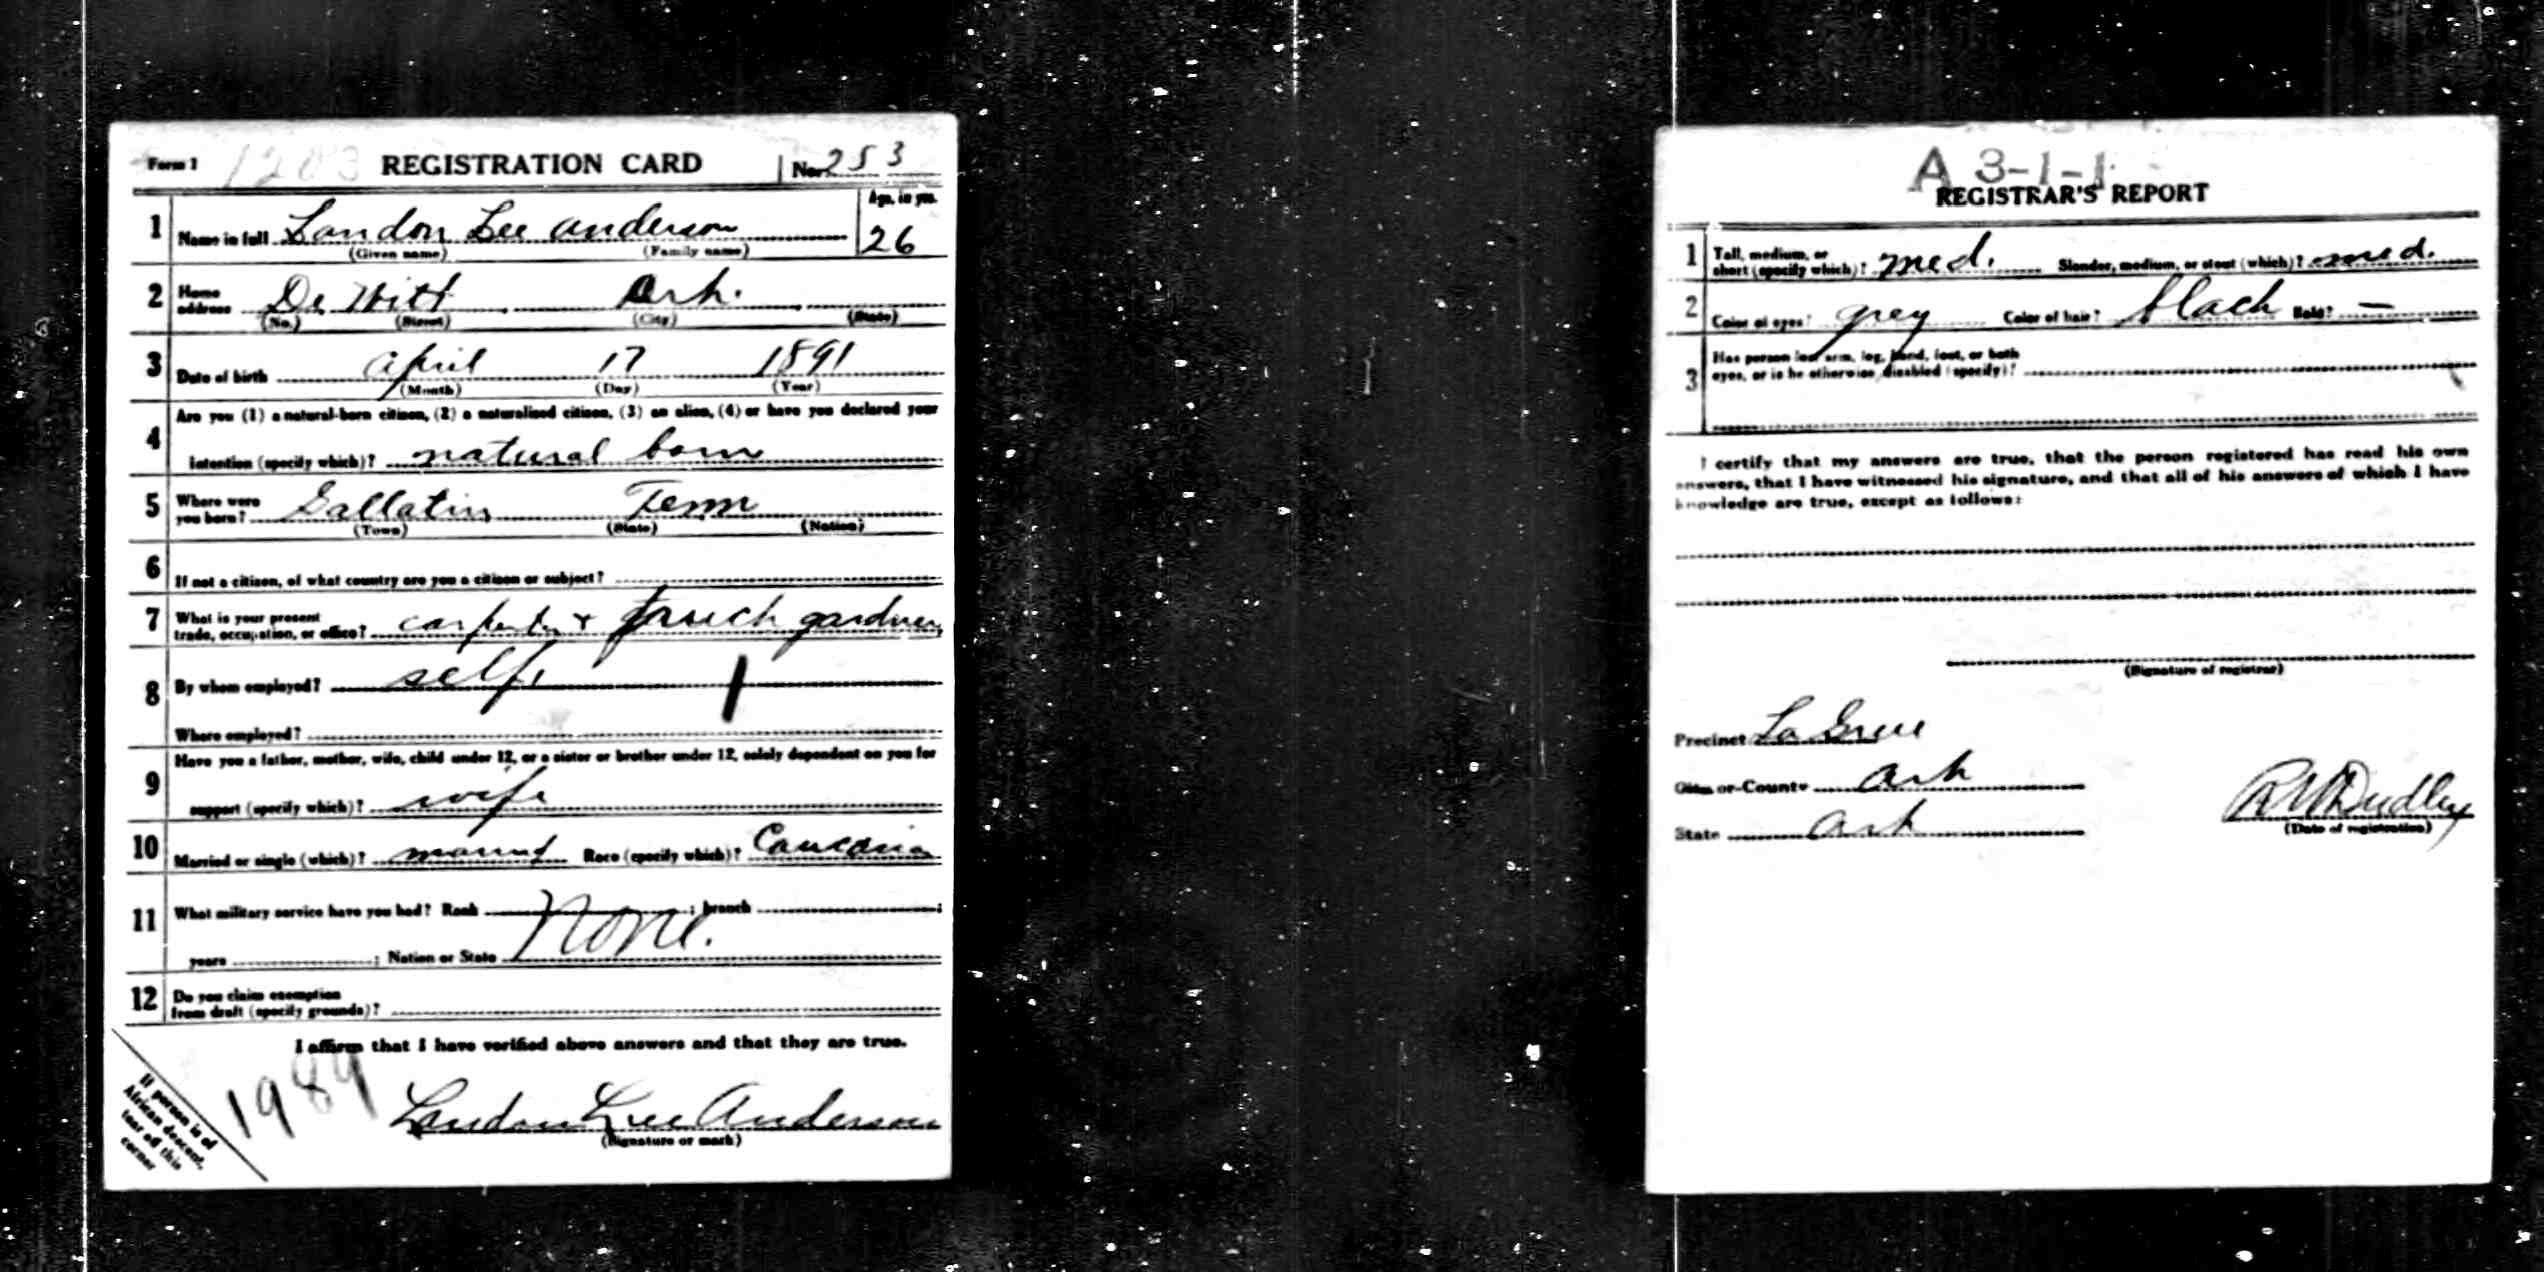 Form 1 1203 REGISTRATION CARD No. 253
Age, in yrs.
1 Name in full Landon Lee Anderson 26
(Given name) (Family name)
2 Home address De Witt Ark.
(No.) (Street) (City) (State)
3 Date of birth April 17 1891
(Month) (Day) (Year)
4 Are you (1) a natural-born citizen, (2) a naturalized citizen, (3) an alien, (4) or have you declared your
intention (specify which)? natural born
5 Where were you born? Gallatin Tenn
(Town) (State) (Nation)
6 If not a citizen, of what country are you a citizen or subject?
7 What is your present trade, occupation, or office? carpenter + gardner
8 By whom employed? self
Where employed?
9 Have you a father, mother, wife, child under 12, or a sister or brother under 12, solely dependent on you for
support (specify which)? wife
10 Married or single (which)? married Race (specify which)? Caucasian
11 What military service have you had? Rank None. ; branch ;
years ; Nation or State
12 Do you claim exemption from draft (specify grounds)?
I affirm that I have verified above answers and that they are true.
1989
Landon Lee Anderson
(Signature or mark)
If person is of
African descent,
tear off this
corner
A 3-1-1
REGISTRAR'S REPORT
1 Tall, medium, or short (specify which)? med. Slender, medium, or stout (which)? med.
2 Color of eyes? grey Color of hair? black Bald? —
3 Has person lost arm, leg, hand, foot, or both
eyes, or is he otherwise disabled (specify)?
I certify that my answers are true, that the person registered has read his own
answers, that I have witnessed his signature, and that all of his answers of which I have
knowledge are true, except as follows:
(Signature of registrar)
Precinct La Grue
City or County Ark
State Ark
Dudley
(Date of registration)